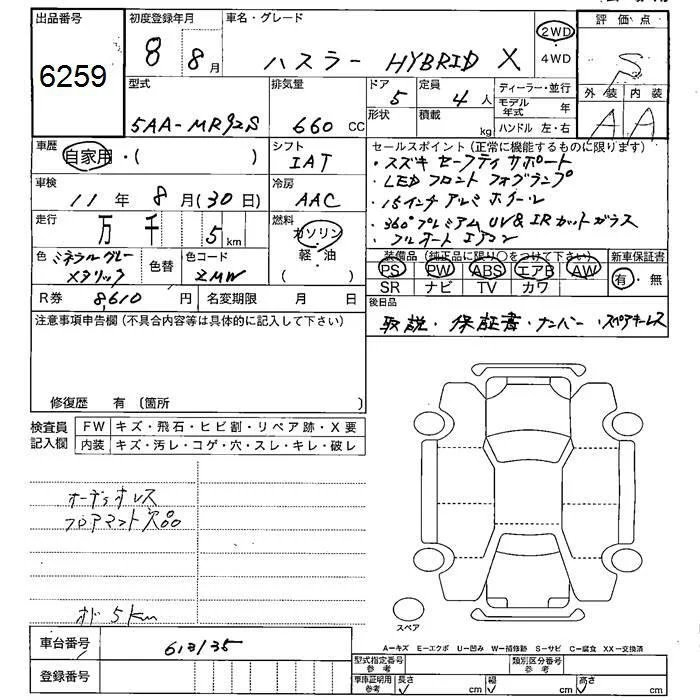 出品番号 初度登録年月 車名・グレード 評価点
6259 8 8月 ハスラー HYBRID X 2WD・4WD S
型式 排気量 ドア 定員 ディーラー・並行 外装 内装
5AA-MR92S 660 CC 5 4人 モデル年式 年 A A
形状 積載 kg ハンドル 左・右
車歴 自家用・( ) シフト IAT
セールスポイント(正常に機能するものに限ります)
・スズキ セーフティ サポート
・LED フロント フォグランプ
・15インチ アルミ ホイール
・360°プレミアム UV&IRカットガラス
・フルオート エアコン
車検 11年 8月(30日) 冷房 AAC
走行 万 千 5km 燃料 ガソリン・軽・油 ( )
色 ミネラルグレーメタリック 色替 色コード ZMW
装備品(純正品に限り○をつけて下さい) 新車保証書
PS PW ABS エアB AW 有・無
SR ナビ TV カワ
R券 8,610円 名変期限 月 日
後日品
取説・保証書・ナンバー・スペアキーレス
注意事項申告欄(不具合内容等は具体的に記入して下さい)
修復歴 有 〔箇所 〕
検査員記入欄 FW キズ・飛石・ヒビ割・リペア跡・X要
内装 キズ・汚レ・コゲ・穴・スレ・キレ・破レ
オーディオレス
フロアマット欠品
オド 5km
スペア
車台番号 613135
A−キズ E−エクボ U−凹み W−補修跡 S−サビ C−腐食 XX−交換済
型式指定番号 参考 類別区分番号 参考
登録番号
車庫証明用 参考 長さ cm 幅 cm 高さ cm